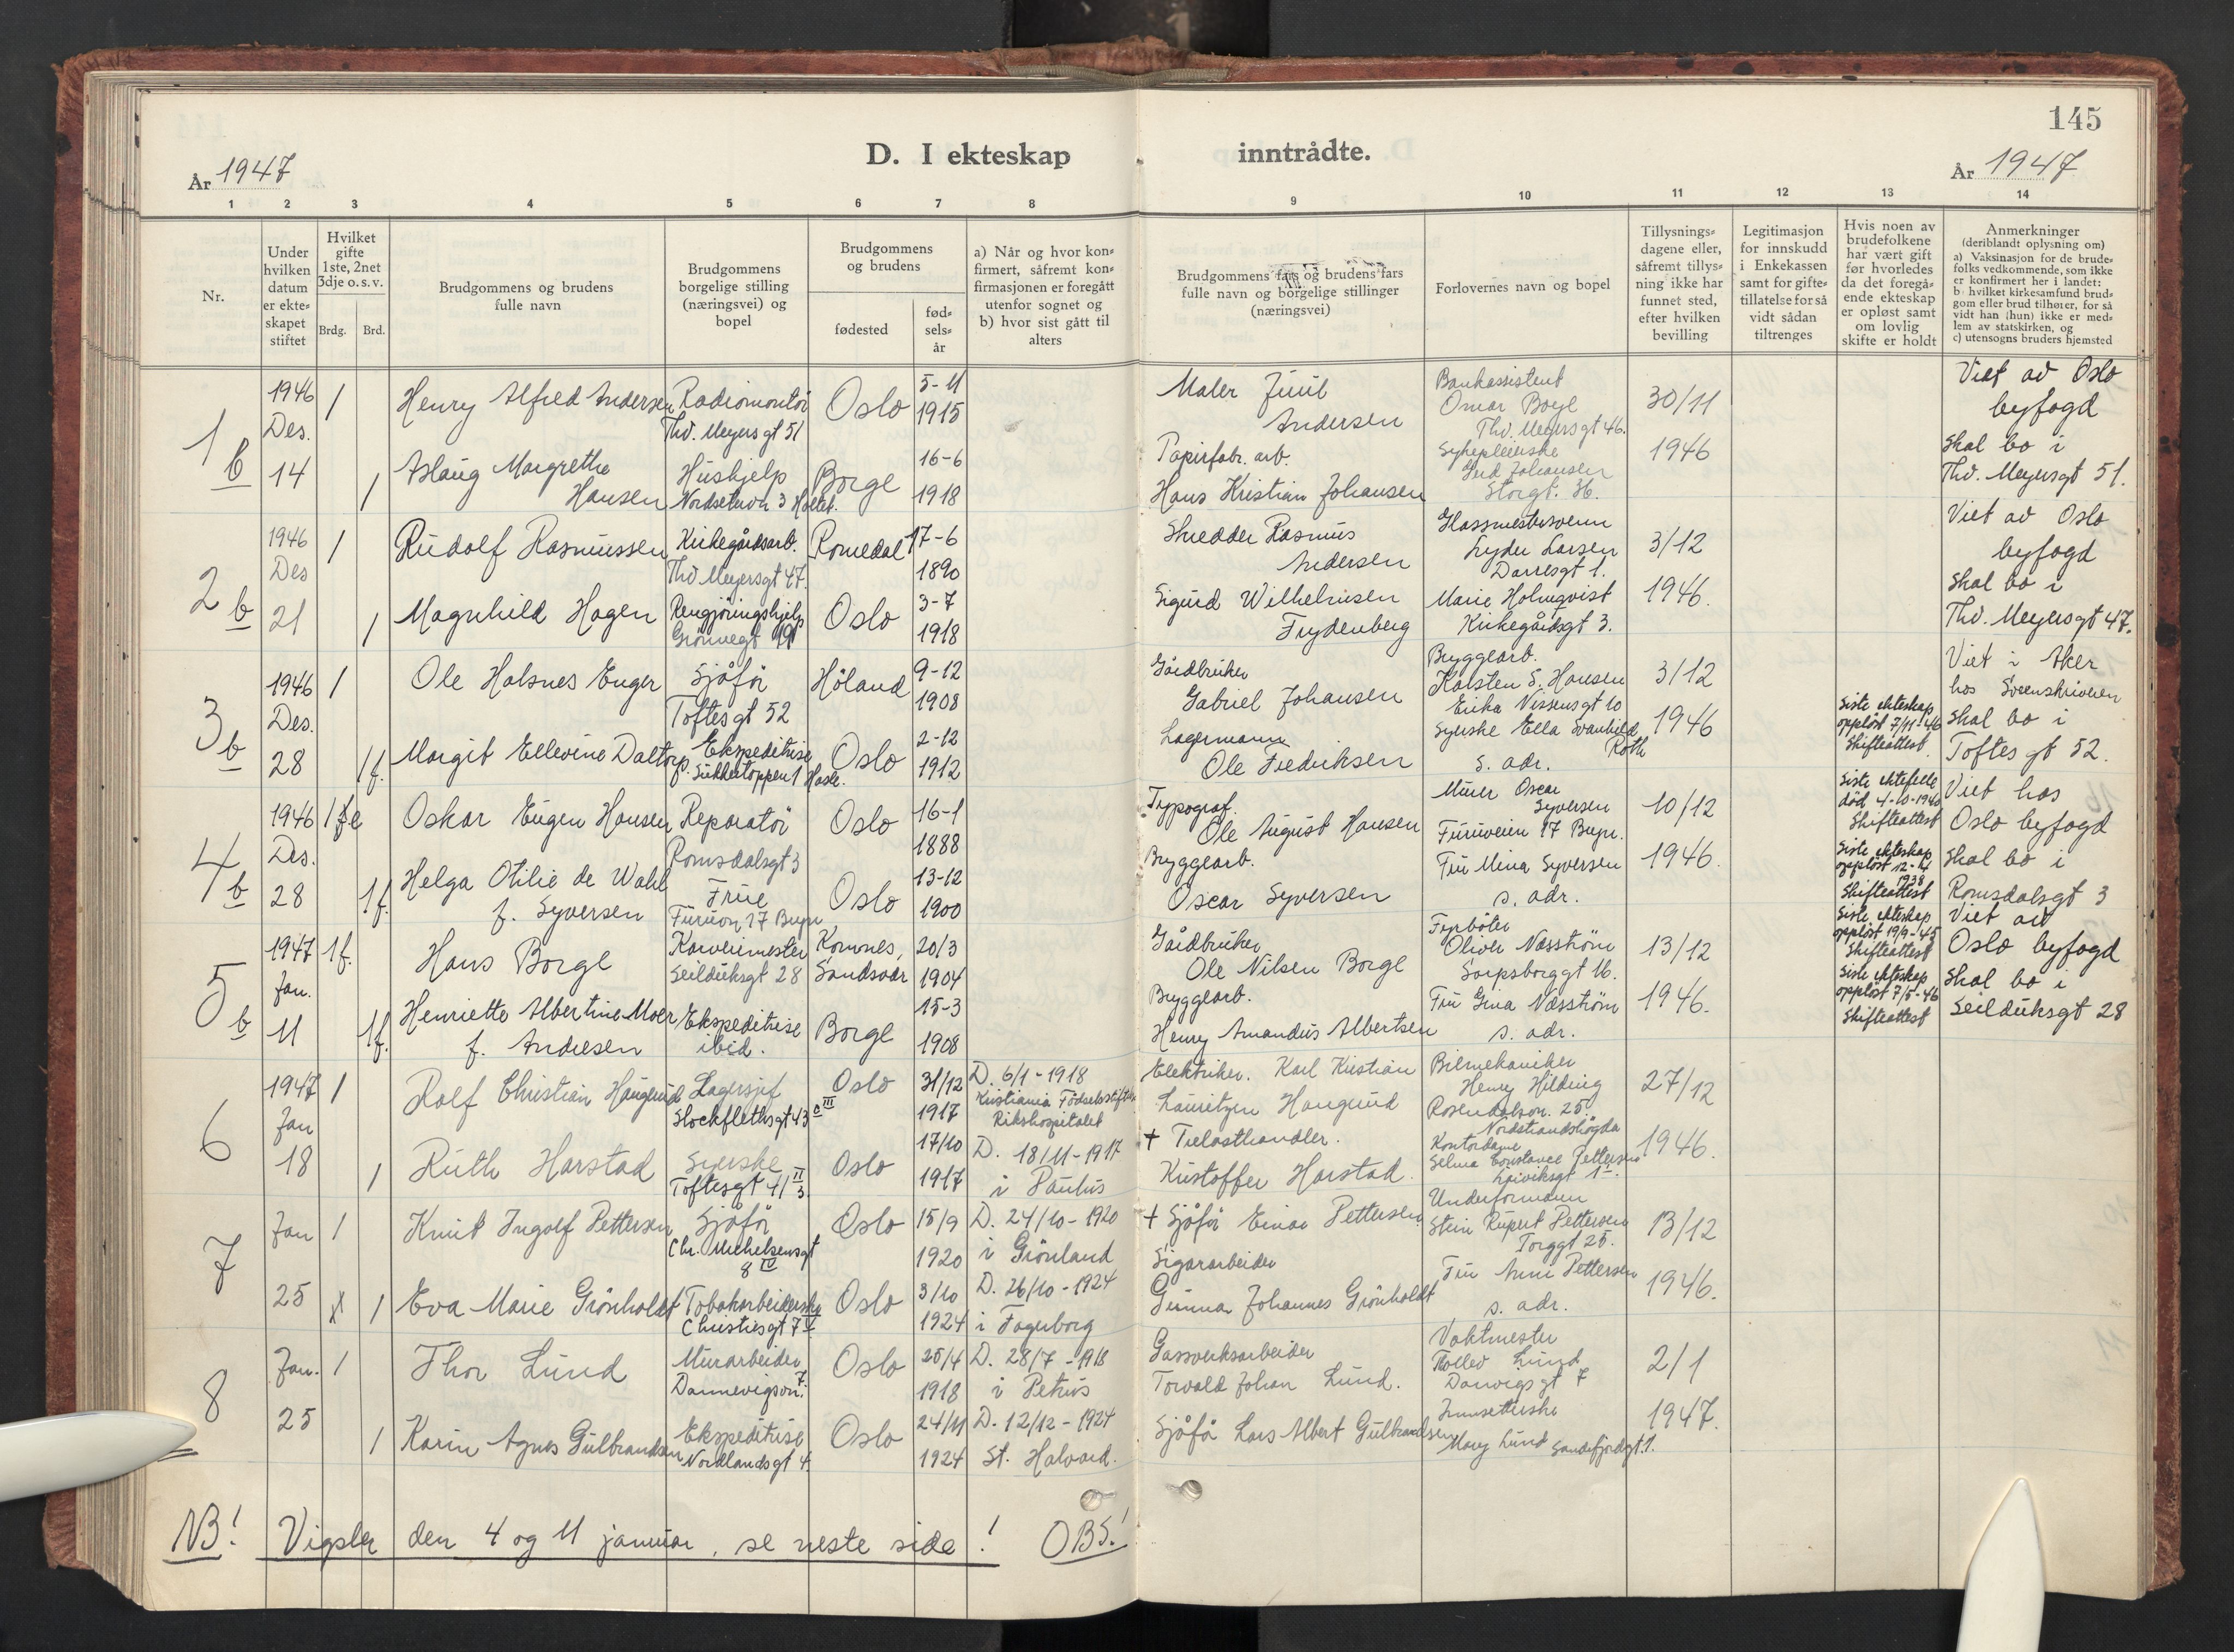 145
D. I ekteskap inntrådte.
År 1947
År 1947
1 2 3 4 5 6 7 8 9 10 11 12 13 14
Nr.
Under hvilken datum er ekte- skapet stiftet
Hvilket gifte 1ste, 2net 3dje o. s. v.
Brdg. Brd.
Brudgommens og brudens fulle navn
Brudgommens borgelige stilling (næringsvei) og bopel
Brudgommens og brudens
fødested
fød- sels- år
a) Når og hvor kon- firmert, såfremt kon- firmasjonen er foregått utenfor sognet og b) hvor sist gått til alters
Brudgommens fars og brudens fars fulle navn og borgelige stillinger (næringsvei)
Forlovernes navn og bopel
Tillysnings- dagene eller, såfremt tillys- ning ikke har funnet sted, efter hvilken bevilling
Legitimasjon for innskudd i Enkekassen samt for gifte- tillatelse for så vidt sådan tiltrenges
Hvis noen av brudefolkene har vært gift før hvorledes da det foregå- ende ekteskap er opløst samt om lovlig skifte er holdt
Anmerkninger (deriblandt oplysning om) a) Vaksinasjon for de brude- folks vedkommende, som ikke er konfirmert her i landet: b) hvilket kirkesamfund brud- gom eller brud tilhører, for så vidt han (hun) ikke er med- lem av statskirken, og c) utensogns bruders hjemsted
1 b
1946 Des. 14
1 Henry Alfred Andersen
Radiomontör Thv. Meyers gt 51
Oslo 5-11 1915
Maler Juul Andersen
Bankassistent Omar Boge Thv. Meyersgt 46.
30/11 1946
Viet av Oslo byfogd
1 Aslaug Margrethe Hansen
Hushjelp Nordsetervn 3 Holtet.
Borge 16-6 1918
Papirfabr. arb. Hans Kristian Johansen
Sykepleierske Johansen Storgt. 36.
Skal bo i Thv. Meyersgt 51.
2 b
1946 Des 21
1 Rudolf Rasmussen
Kirkegårdsarb. Thv Meyersgt 47.
Romedal 17-6 1890
Skredder Rasmus Andersen
Glassmestersvenn Lyder Larsen Darresgt 1.
3/12 1946.
Viet av Oslo byfogd
1 Magnhild Hagen
Rengjöringshjelp Grönnegt 19
Oslo 3-7 1918
Sigurd Wilhelmsen Frydenberg
Marie Holmqvist Kirkegårdsgt 3.
Skal bo i Thv. Meyersgt 47.
3 b
1946 Des. 28
1 Ole Halsnes Enger
Sjåför Toftesgt 52
Höland 9-12 1908
Gårdbruker Gabriel Johansen
Bryggearb. Karsten S. Hansen Erika Nissensgt 10
3/12 1946
Viet i Aker hos Sorenskriveren
1 f. Margit Ellevine Daltorp
Ekspeditrise Sukkertoppen 1 Hasle.
Oslo 2-12 1912
Lagermann Ole Fredriksen
Syerske Ella Svanhild Roth s. adr.
Siste ekteskap opplöst 7/11-46 Skifteattest
Skal bo i Toftes gt 52.
4 b
1946 Des. 28
1 fe Oskar Eugen Hansen
Reparatör Romsdalsgt 3
Oslo 16-1 1888
Typograf. Ole August Hansen
Murer Oscar Syversen Furuveien 17 Bryn.
10/12 1946.
Siste ektefelle död 4-10-1940 Skifteattest
Viet hos Oslo byfogd
1 f. Helga Otilie de Wahl f. Syversen
Frue Furuvn 17 Bryn
Oslo 13-12 1900
Bryggearb. Oscar Syversen
Fru Mina Syversen s. adr.
Siste ekteskap opplöst 1938 Skifteattest
Skal bo i Romsdalsgt 3
5 b
1947 Jan. 11
1 f. Hans Borge
Karverimester Seilduksgt 28
Komnes, Sandsvær 20/3 1904
Gårdbruker Ole Nilsen Borge
Fyrböter Oliver Næsström Sarpsborggt 16.
13/12 1946.
Siste ekteskap opplöst 19/9-45 Skifteattest
Viet av Oslo byfogd
1 f. Henriette Albertine Moer f. Andresen
Ekspeditrise ibid.
Borge 15-3 1908
Bryggearb. Henry Amandus Albertsen
Fru Gina Næsström s. adr.
Siste ekteskap opplöst 7/5-46 Skifteattest
Skal bo i Seilduksgt 28
6
1947 Jan 18
1 Rolf Christian Haugerud
Lagersjef Stockflethsgt 43 c III
Oslo 31/12 1917
D. 6/1-1918 Kristiania Födselsstiftelse Rikshospitalet
Elektriker. Karl Kristian Lauritzen Haugerud
Bilmekaniker Henry Hilding Rosendalsvn. 25. Nordstrandshögda
27/12 1946.
1 Ruth Harstad
Syerske Toftesgt 41 II 3
Oslo 17/10 1917
D. 18/11-1917 i Paulus
+ Trelasthandler. Kristoffer Harstad.
Kontordame Selma Constance Pettersen
7
Jan 25
1 Knut Ingolf Pettersen
Sjåför Chr. Michelsensgt 8 IV
Oslo 15/9 1920
D. 24/10-1920 i Grönland
+ Sjåför Einar Pettersen
Underformann Stein Rupert Pettersen Torggt 25.
13/12 1946.
x 1 Eva Marie Grönholdt
Tobakarbeiderske Christiesgt 7
Oslo 3/10 1924
D. 26/10-1924 i Fagerborg
Sigararbeider Gunnar Johannes Grönholdt
Fru Anni Pettersen s. adr.
8
Jan. 25
1 Thor Lund
Murarbeider Dannevigsvn. 7
Oslo 25/4 1918
D. 28/7-1918 i Petrus
Gassverksarbeider Torvald Johan Lund.
Vaktmester Lund gt 7
2/1 1947.
1 Karin Agnes Gulbrandsen
Ekspeditrise Nordlandsgt 4.
Oslo 24/11 1924
D. 12/12-1924 St. Halvard.
Sjåför Lars Albert Gulbrandsen
Mary Lund Sandefjordgt. 1.
NB! Vigsler den 4 og 11 januar, se neste side! OBS!